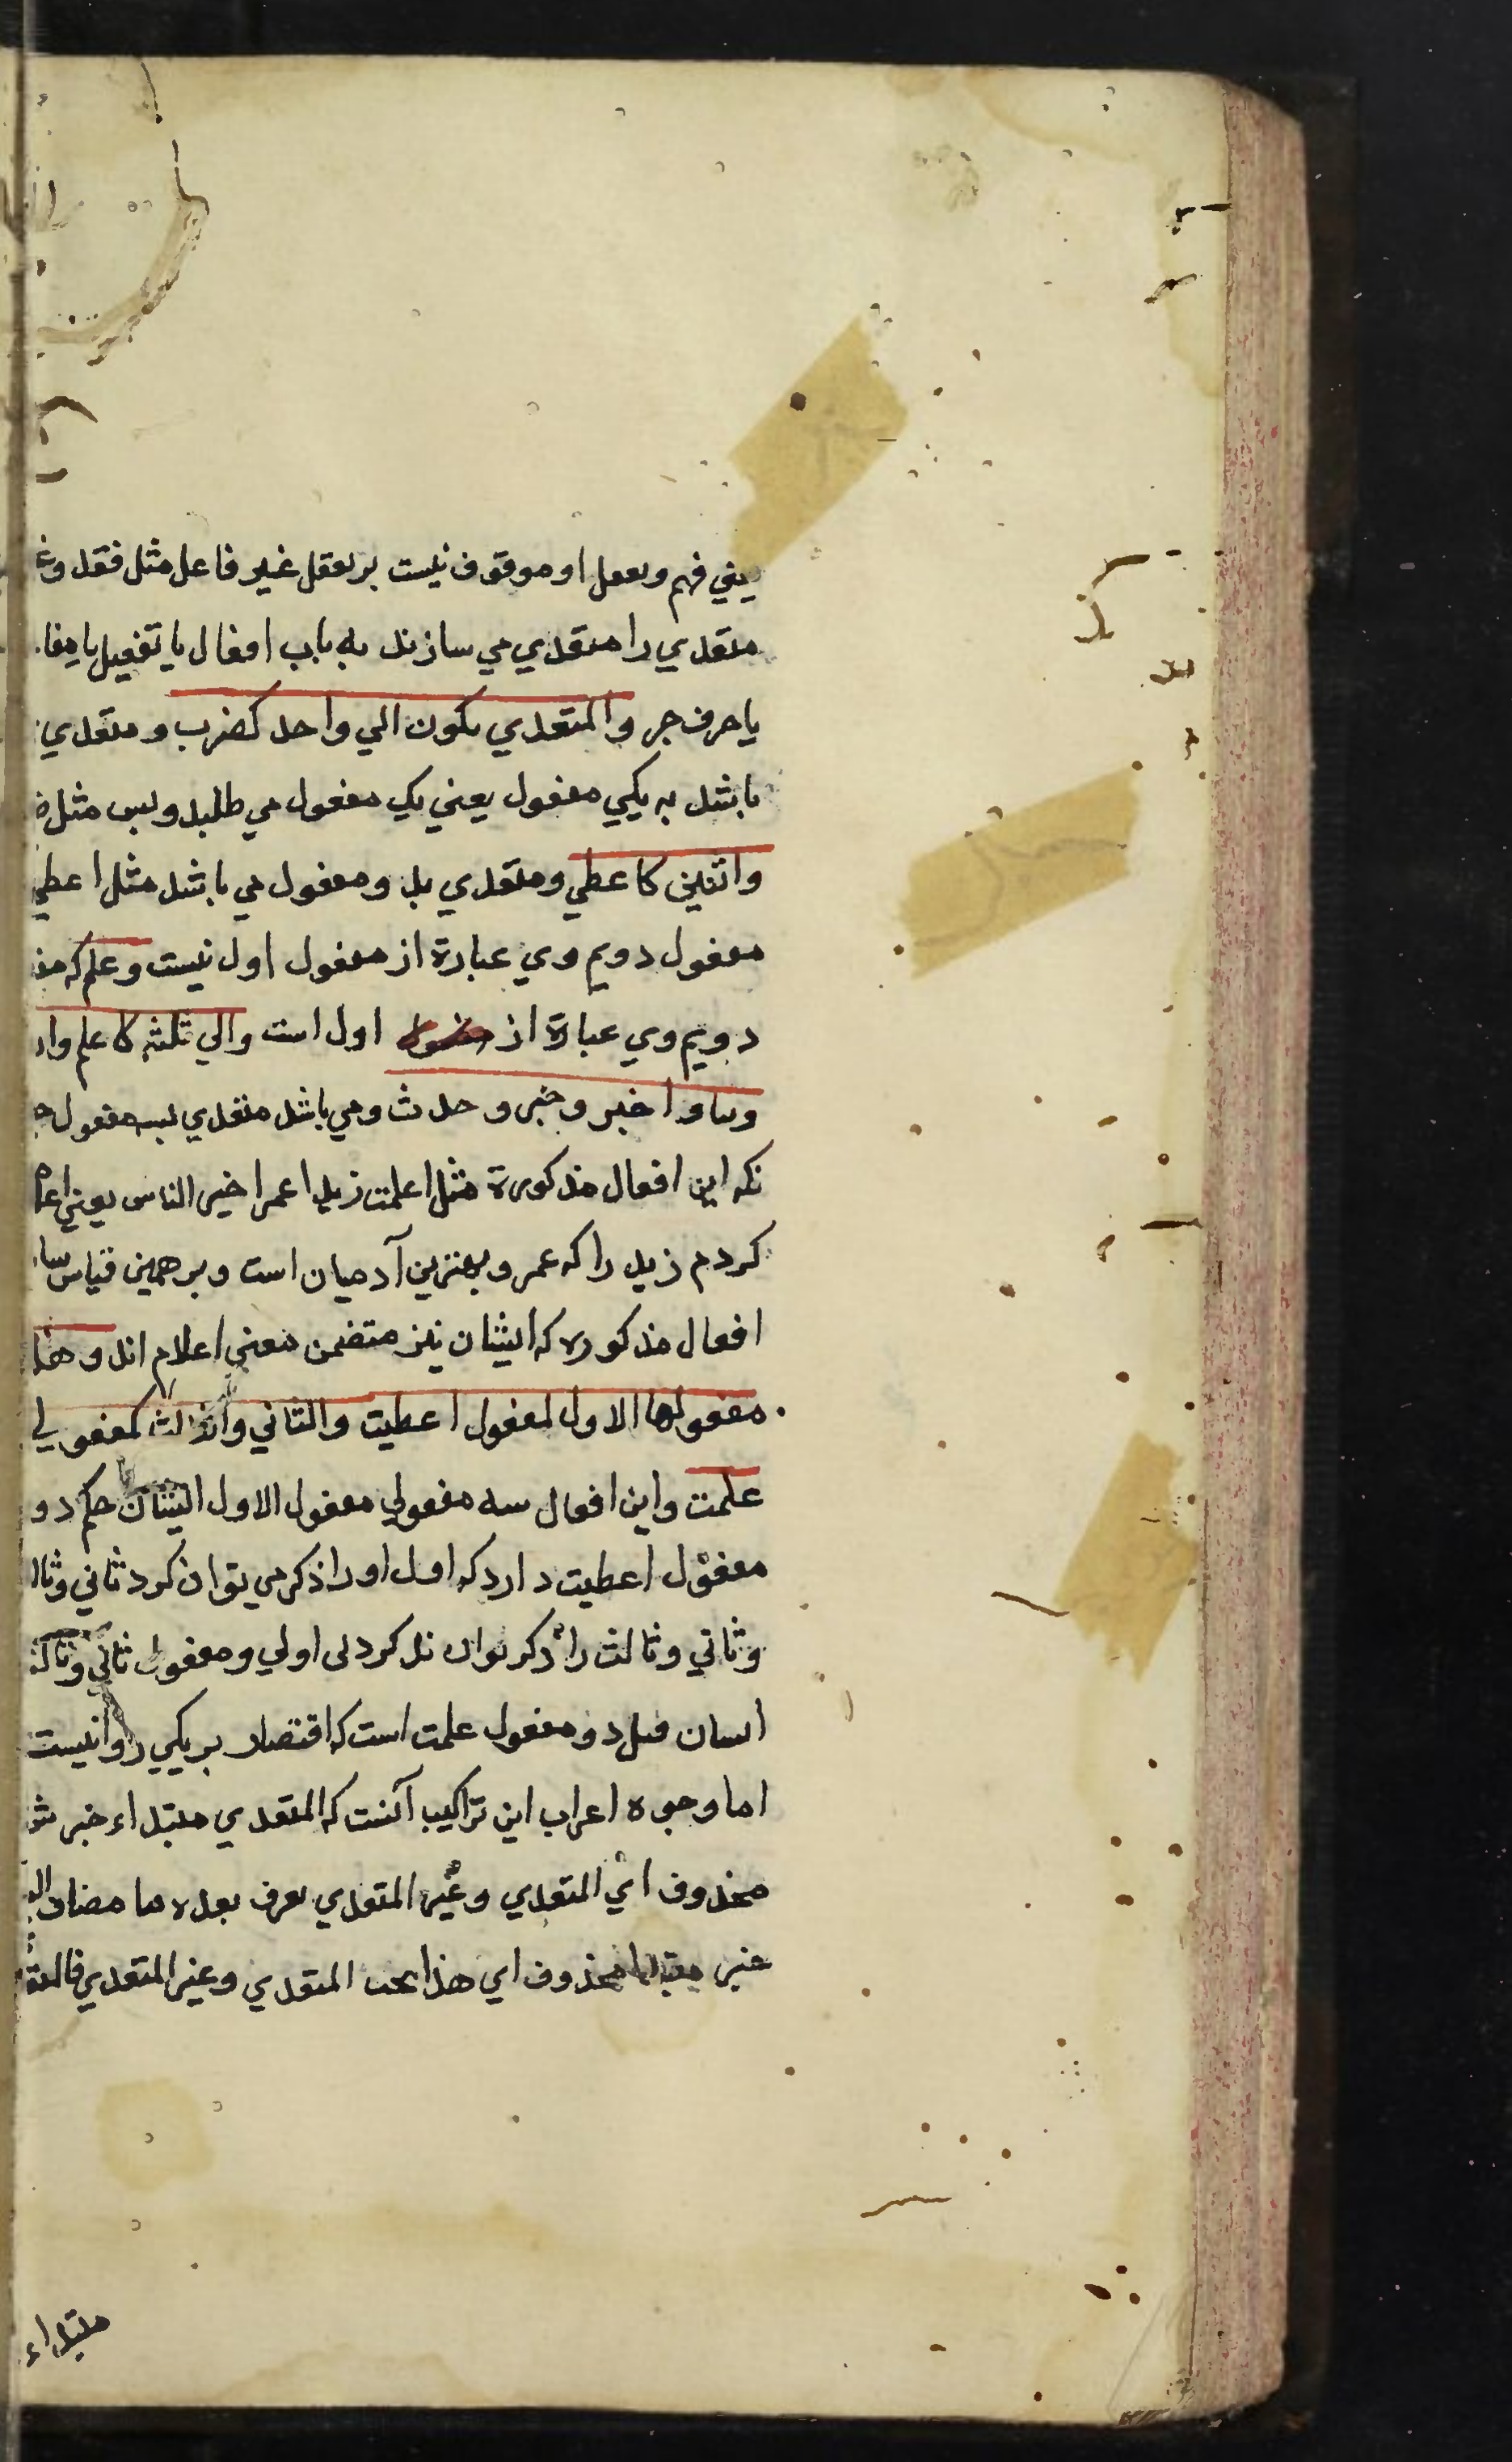 يعني فهم وتعقل او موقوف نيست بر تعقل غير فاعل مثل فقد وغ
متعدي را متعدي مي سازند به باب افعال يا تفعيل يا مفا
يا حرف جر والمتعدي يكون الي واحد كضرب و متعدي
باشد به يكي مفعول يعني يك مفعول مي طلبد وبس مثل ض
واثنين كاعطي ومتعدي بدو مفعول مي باشد مثل اعطي
مفعول دويم وي عبارة از مفعول اول نيست وعلم كه مف
دويم وي عبارة از اول است والي ثلثه كاعلم وار
ونبا واخبر وخبر وحدث ومي باشد متعدي بسه مفعول
نكه اين افعال مذكورة مثل اعلمت زيدا عمرا خير الناس يعني اعلا
كردم زيد را كه عمرو بهترين آدميان است وبر همين قياس سا
افعال مذكوره كه ايشان نيز متضمن معني اعلام اند وهذا
مفعولها الاول كمفعول اعطيت والثاني والثالث كمفعولي
علمت واين افعال سه مفعولي مفعول الاول ايشان حكم دو
مفعول اعطيت دارد كه اول اورا ذكر مي توان كرد ثاني وثال
وثاني وثالث را ذكر توان كرد بي اولي ومفعول ثاني وثالث
ايشان مثل دو مفعول علمت است كه اقتصار بر يكي روا نيست
اما وجوه اعراب اين تراكيب آنست كه المتعدي مبتداء خبر ش
محذوف اي المتعدي وغير المتعدي نعرف بعده ما مضاف الي
خبر مبتدا محذوف اي هذا بحث المتعدي وغير المتعدي فالمتع
مبتداء